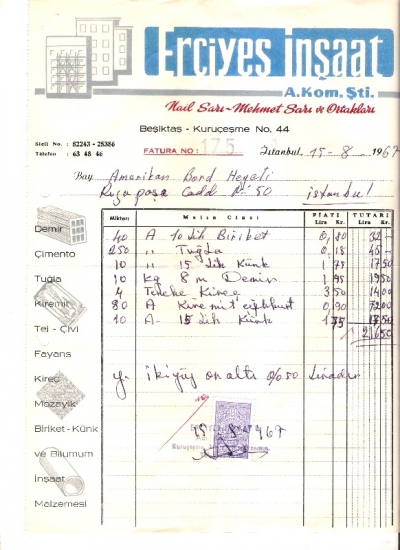 Erciyes inşaat
A.Kom.Şti.
Nail Sarı - Mehmet Sarı ve Ortakları
Beşiktaş - Kuruçeşme No. 44
Sicil No. : 82243 - 25386
Telefon : 63 48 46
FATURA NO: 175
İstanbul, 15-8-1967
Bay Amerikan Bord Heyeti
Rızapaşa Cadd No 50 istanbul
Miktarı Malın Cinsi FİATI TUTARI
Lira Kr. Lira Kr.
40 A 10 luk Biriket 0,80 32 -
250 " Tuğla 0,18 45 -
10 " 15 lik Künk 1 75 17 50
10 kg 8 m Demir 1 95 19 50
4 Teneke Kireç 3 50 14 00
80 A Kiremit 0,90 72 00
10 A- 15 lik Künk 1 75 17 50
216 50
y. ikiyüz on altı %50 liradır
15 8 967
Demir
Çimento
Tuğla
Kiremit
Tel - Çivi
Fayans
Kireç
Mozayik
Biriket - Künk
ve Bilumum
İnşaat
Malzemesi